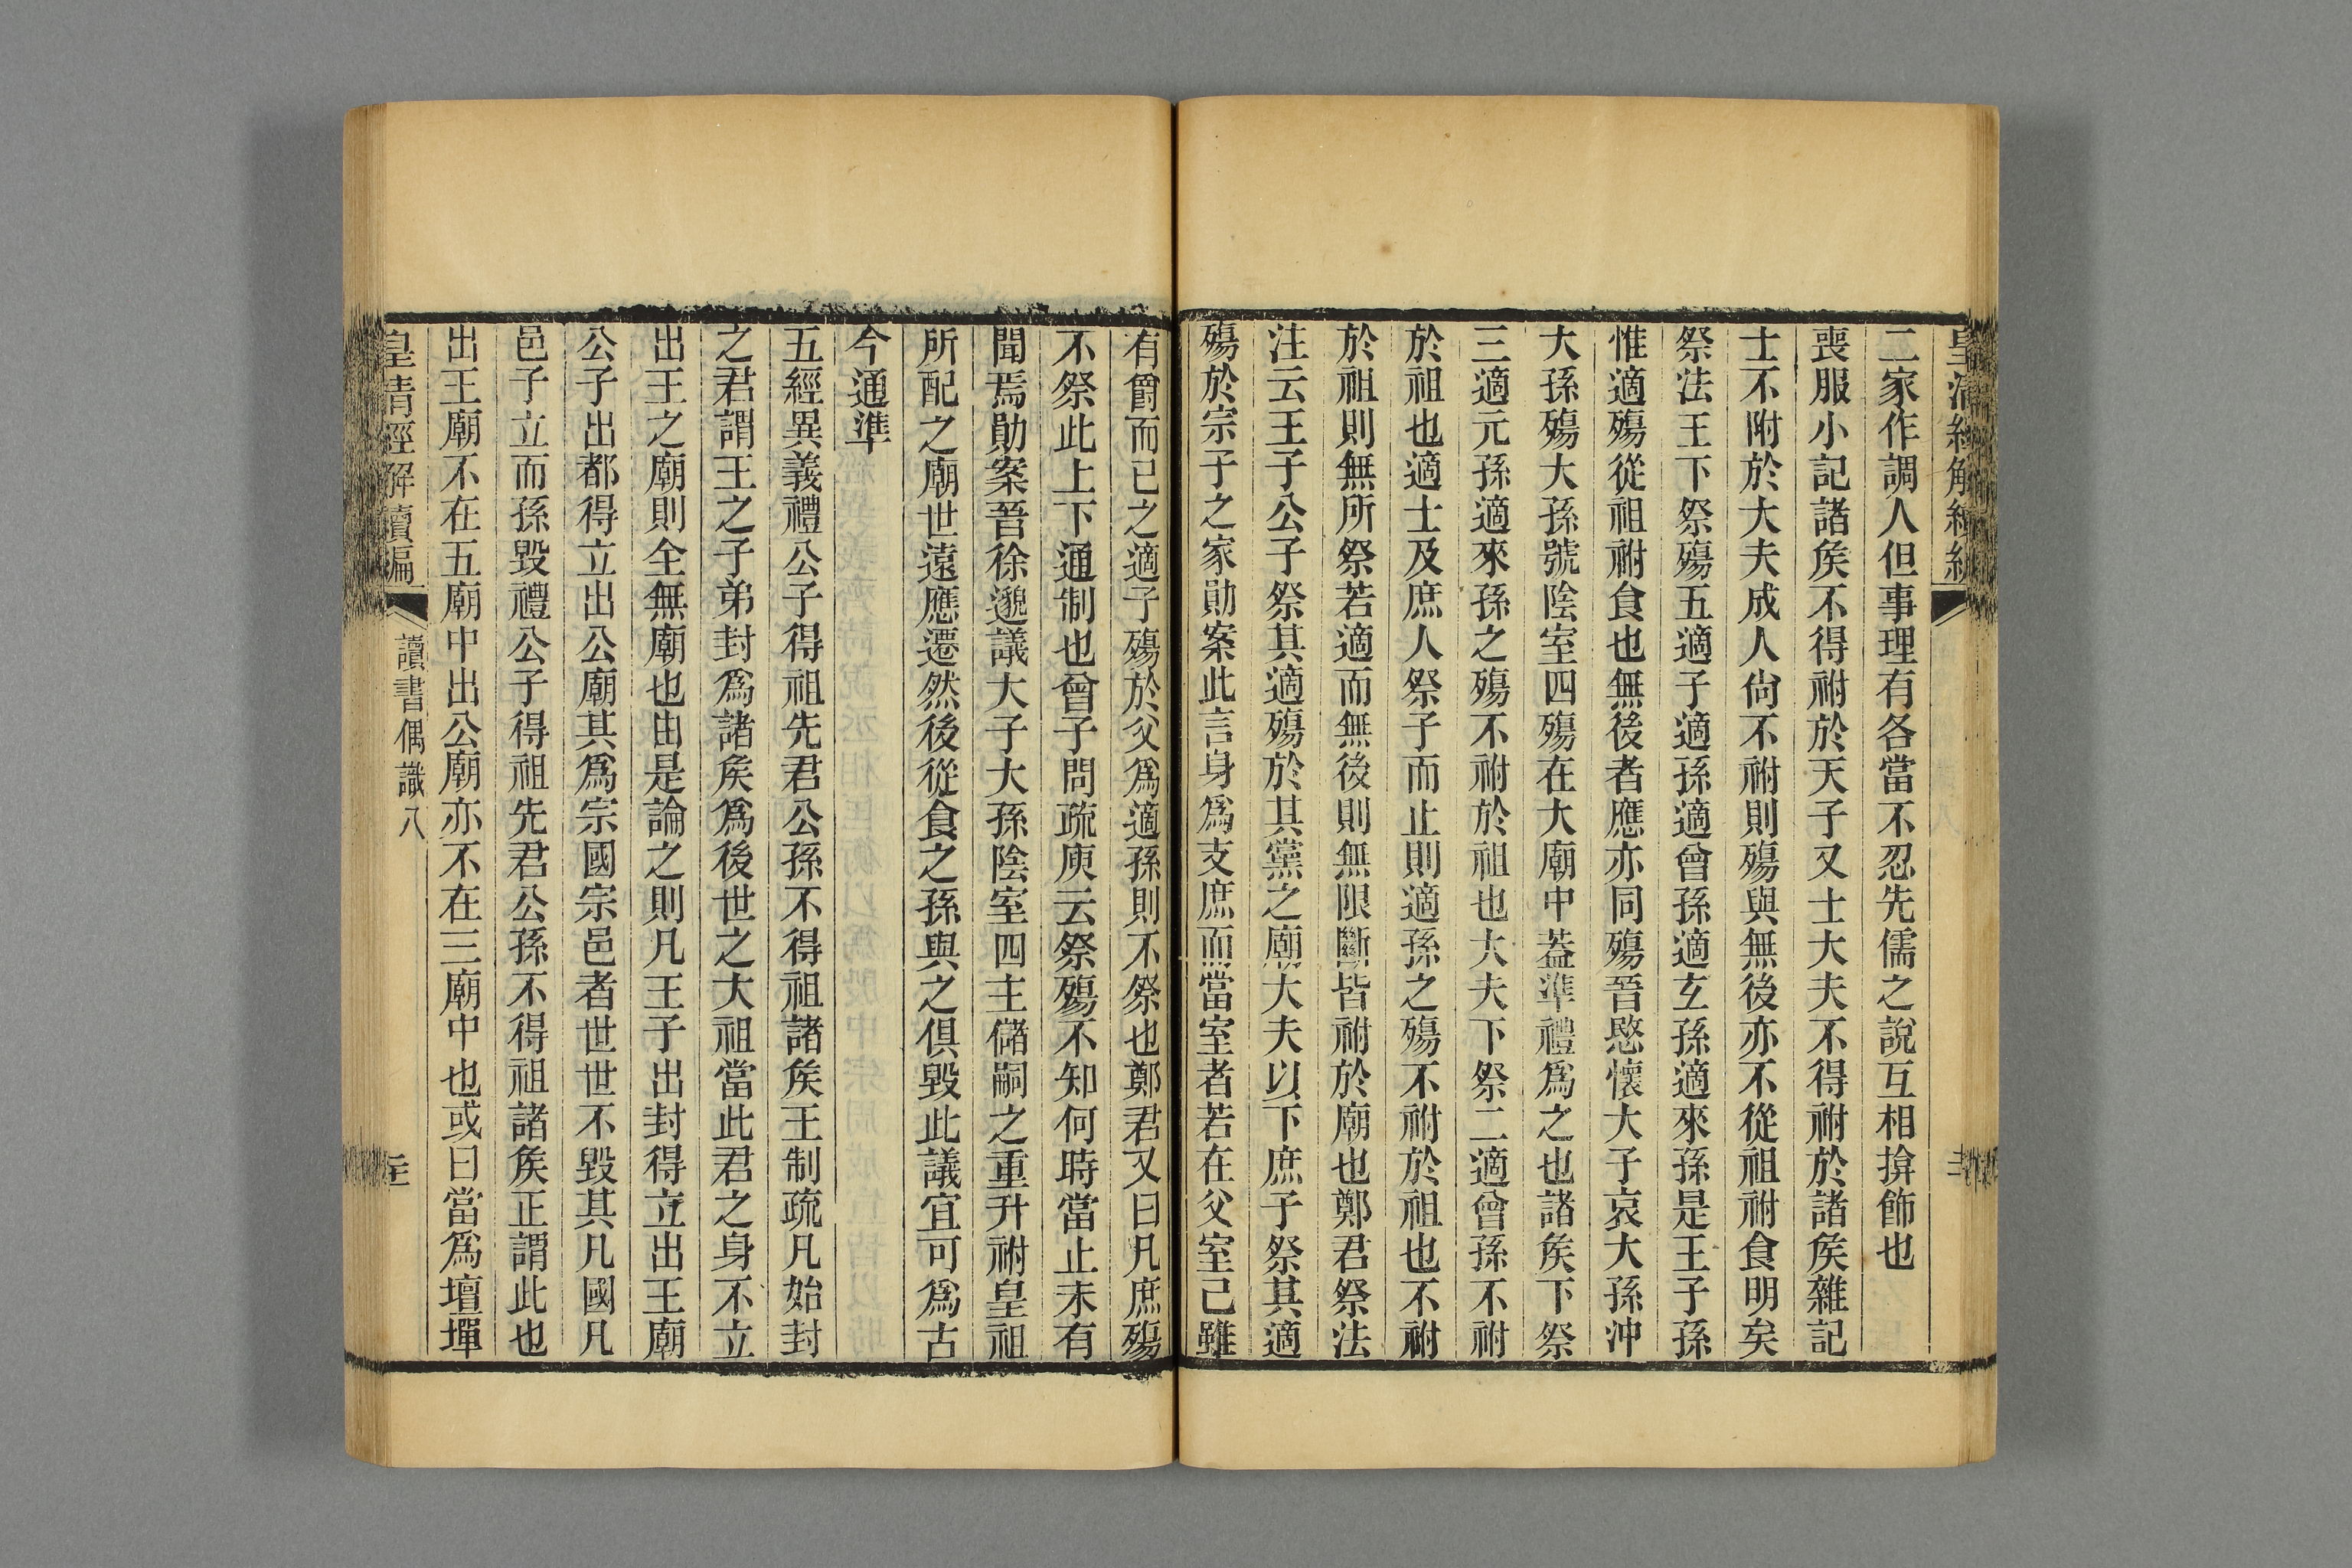 二家作調人但事理有各當不忍先儒之說互相揜飾也
喪服小記諸矦不得祔於天子又士大夫不得祔於諸矦雜記
士不附於大夫成人尙不祔則殤與無後亦不從祖祔食明矣
祭法王下祭殤五適子適孫適曾孫適玄孫適來孫是王子孫
惟適殤從祖祔食也無後者應亦同殤晉愍懷大子哀大孫沖
大孫殤大孫號陰室四殤在大廟中葢準禮爲之也諸矦下祭
三適元孫適來孫之殤不祔於祖也大夫下祭二適曾孫不祔
於祖也適士及庶人祭子而止則適孫之殤不祔於祖也不祔
於祖則無所祭若適而無後則無限斷皆祔於廟也鄭君祭法
注云王子公子祭其適殤於其黨之廟大夫以下庶子祭其適
殤於宗子之家勛案此言身爲支庶而當室者若在父室己雖
有爵而已之適子殤於父爲適孫則不祭也鄭君又曰凡庶殤
不祭此上下通制也曾子問疏庾云祭殤不知何時當止未有
聞焉勛案晉徐邈議大子大孫陰室四主儲嗣之重升祔皇祖
所配之廟世遠應遷然後從食之孫與之俱毀此議宜可爲古
今通準
五經異義禮公子得祖先君公孫不得祖諸矦王制疏凡始封
之君謂王之子弟封爲諸矦爲後世之大祖當此君之身不立
出王之廟則全無廟也由是論之則凡王子出封得立出王廟
公子出都得立出公廟其爲宗國宗邑者世世不毀其凡國凡
邑子立而孫毀禮公子得祖先君公孫不得祖諸矦正謂此也
出王廟不在五廟中出公廟亦不在三廟中也或曰當爲壇墠
皇清經解續編
讀書偶識八